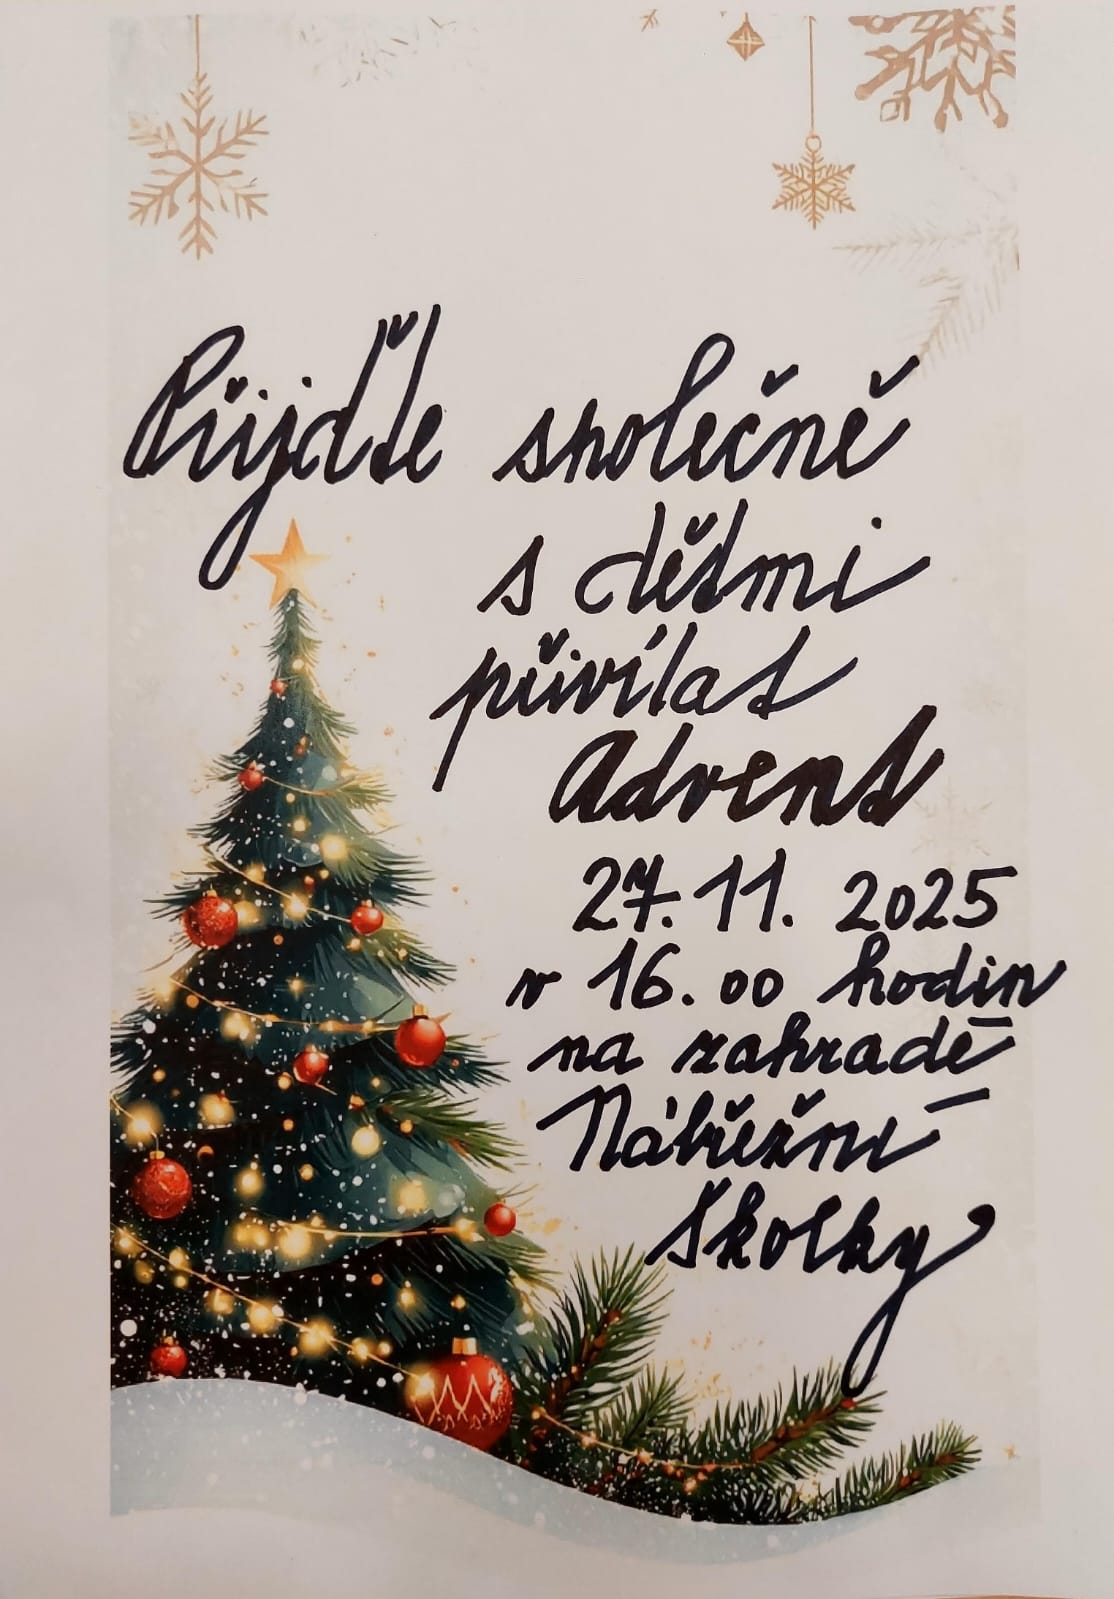 Přijďte společně
s dětmi
přivítat
Advent
27. 11. 2025
v 16.00 hodin
na zahradě
Nábřežní
školky